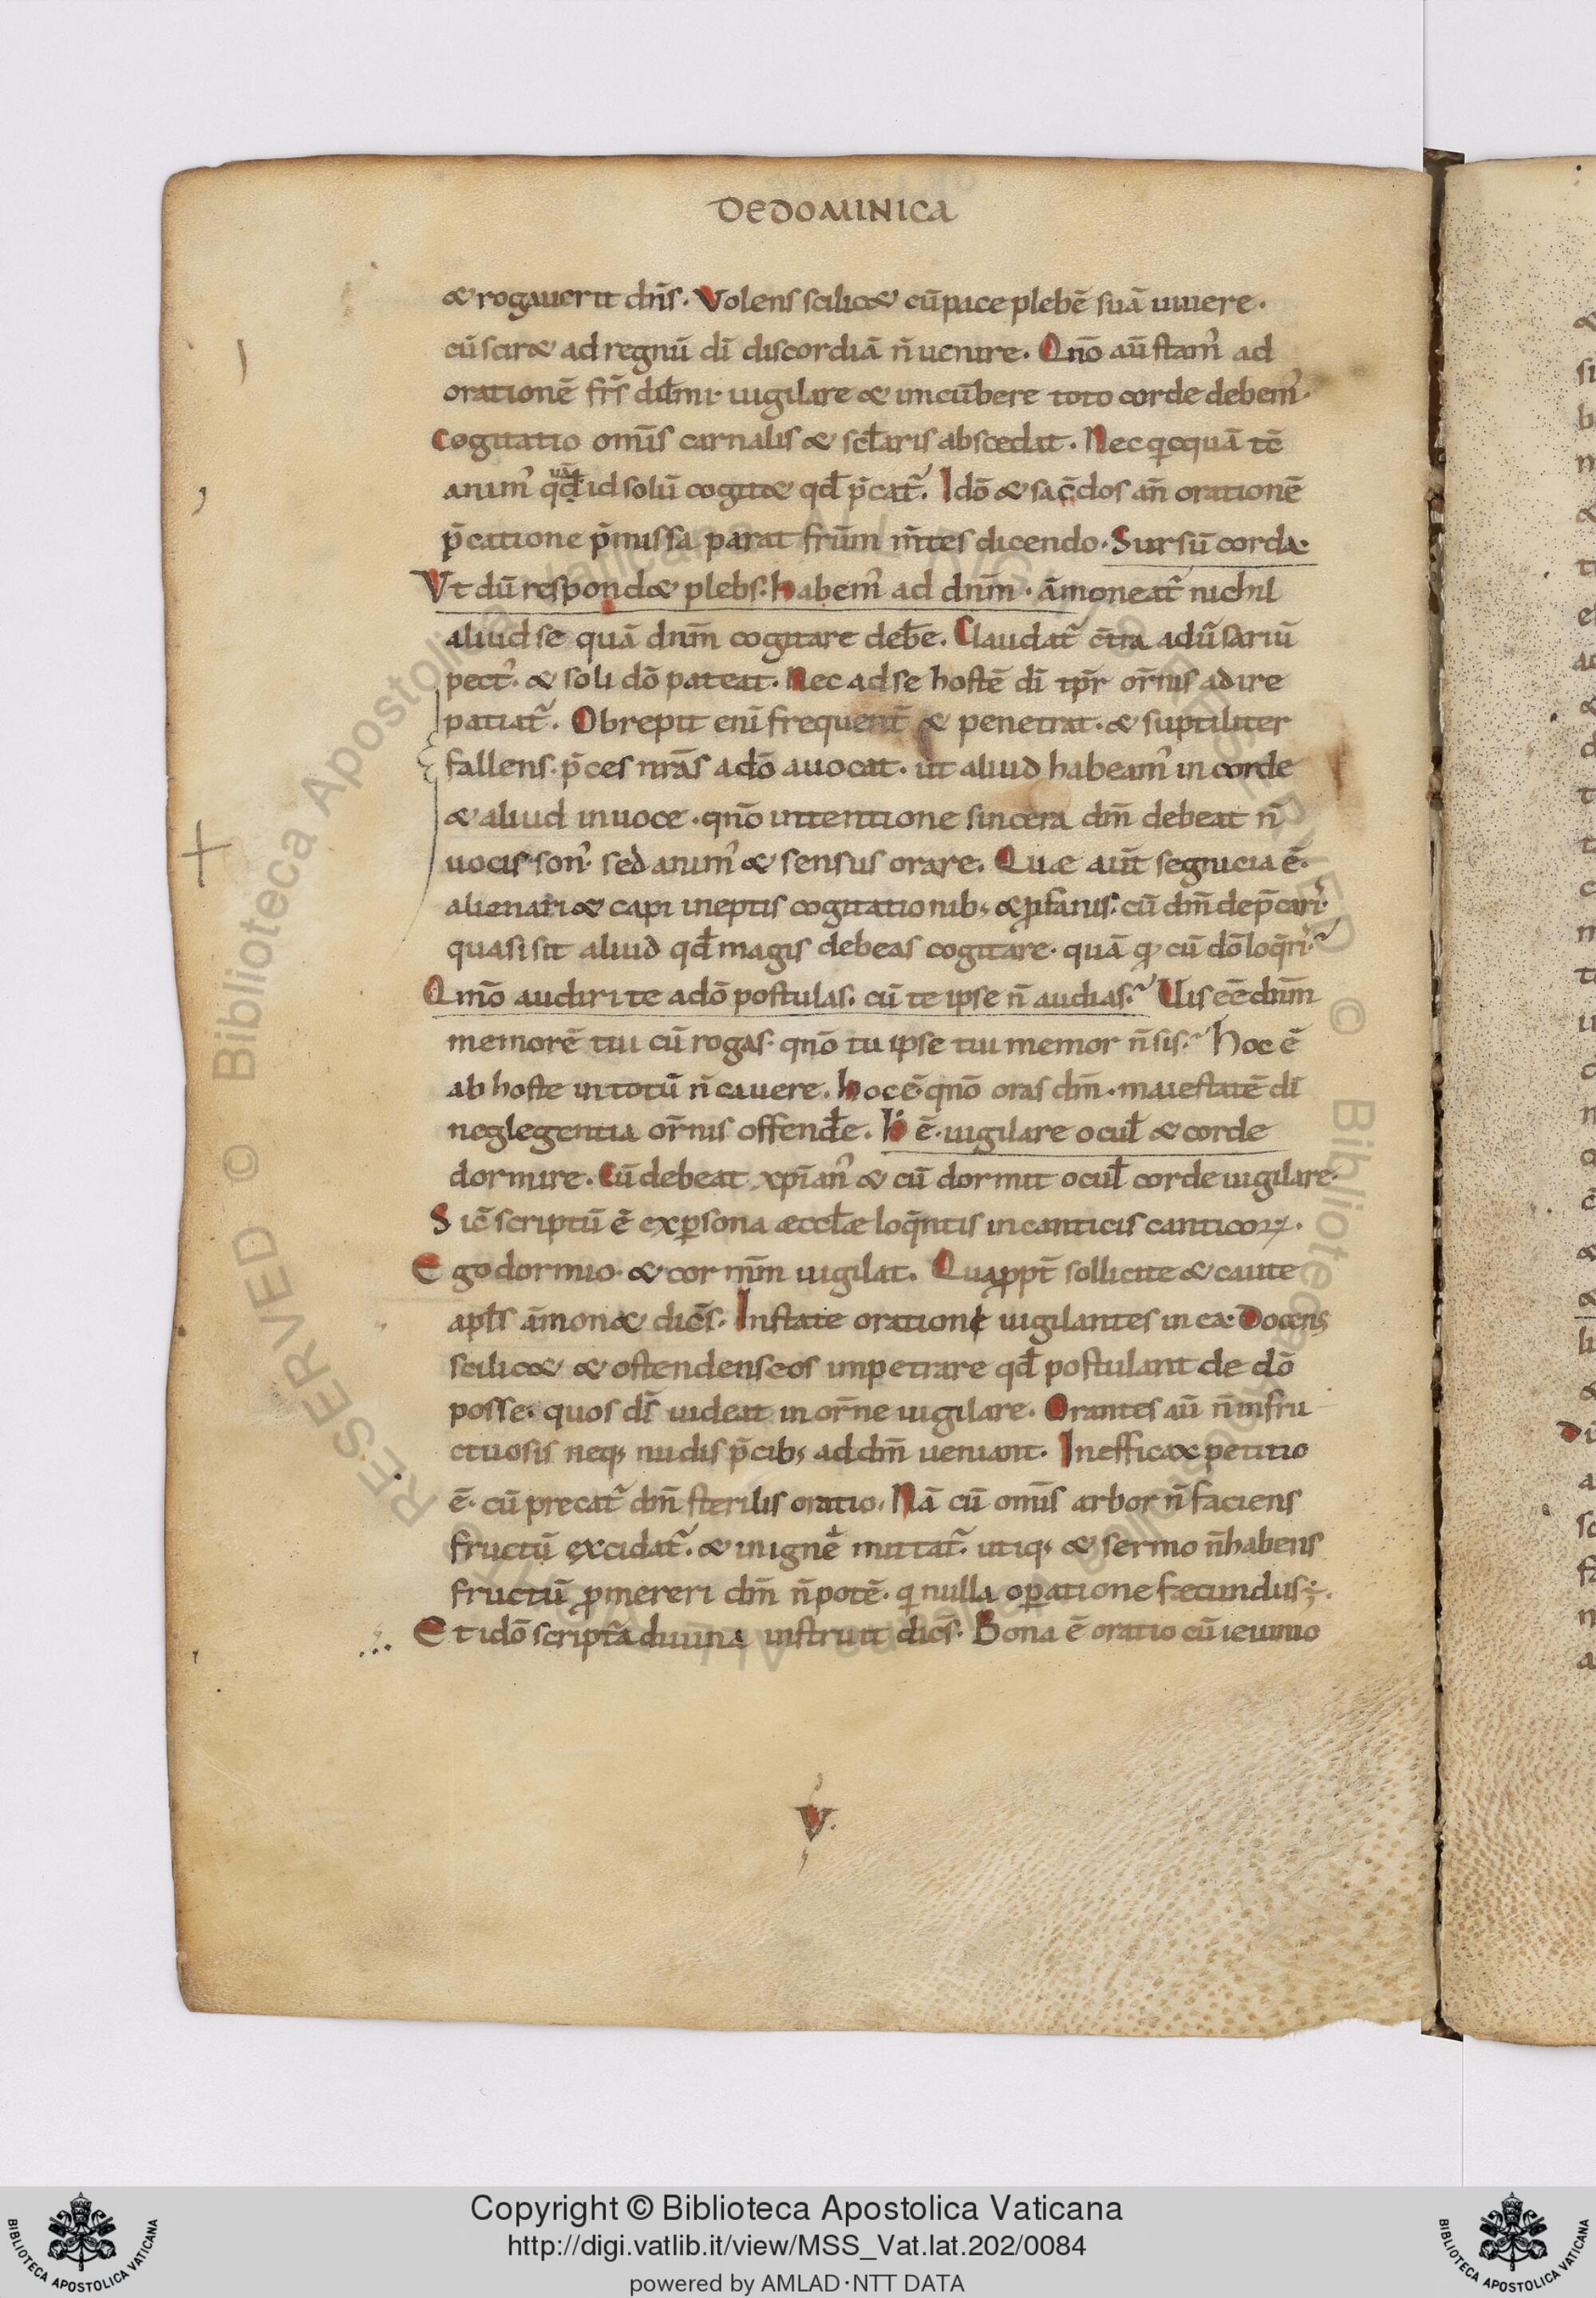 DE DOMINICA
& rogauerit dn̄s. Volens scilic& cū pace plebē suā uiuere.
cū scir& ad regnū dī discordiā n̄ uenire. Qn̄o aū stam᾽ ad
orationē frs̄ dilmi· uigilare & imcūbere toto corde debem᾽.
Cogitatio omīs carnalis & scłaris abscedat. Nec q̇cquā tc̄
anim᾽ qđ id solū cogit& qđ p̄cat᷑. Idō & sac̄dos an̄ orationē
p̄catione p̄missa parat frūm m̄tes dicendo. Sursū corda.
Vt dū respond& plebs. habem᾽ ad dnm̄. āmoneat᷑ nichil
aliud se quā dnm̄ cogitare deb̄e. Claudat᷑ c̄tra adu᷑sariū
pect᾽. & soli dō pateat. Nec ad se hostē dī tp̄r or̄nis adire
patiat᷑. Obrepit enī frequent̄ & penetrat. & suptiliter
fallens. p̄ces nrās a dō auocat. ut aliud habeam᾽ in corde
& aliud in uoce. qn̄o intentione sincera dm̄ debeat n̄
uocis son᾽ sed anim᾽ & sensus orare. Quae aut̄ segnicia ē.
alienari & capi ineptis cogitationib; & ꝓfanis. cū dm̄ dep̄cari᾽
quasi sit aliud qđ magis debeas cogitare. quā qđ cū dō loq̄ri᾽.
Qm̄o audiri te a dō postulas. cū te ipse n̄ audias. Uis eē dnm̄
memorē tui cū rogas. qn̄o tu ipse tui memor n̄ sis. Hoc ē
ab hoste in totū n̄ cauere. hoc ē qn̄o oras dm̄. maiestatē dī
neglegentia or̄nis offend̄e. h̄ ē. uigilare ocuł & corde
dormire. Cū debeat xp̄ian᾽ & cū dormit ocuł corde uigilare.
Sic̄ scriptū ē ex ꝑsona aeccłae loq̄ntis in canticis canticoꝝ.
Ego dormio. & cor mm̄ uigilat. Quaꝓpt̄ sollicite & caute
apłs āmon& dicēs. Instate orationi uigilantes in ea. Docens
scilic& & ostendens eos impetrare qđ postulant de dō
posse. quos dī uideat in or̄ne uigilare. Orantes aū n̄ infru
ctuosis neq; nudis p̄cib; ad dm̄ ueniant. Inefficax petitio
ē. cū precat᷑ dm̄ sterilis oratio. Nā cū omīs arbor n̄ faciens
fructū excidat᷑. & in ignē mittat᷑. utiq; & sermo n̄ habens
fructū ꝓmereri dm̄ n̄ potē. qi nulla oꝑatione faecundus;
Et idō scriptā diuina instruit dicēs. Bona ē oratio cū ieiunio
V.
Copyright © Biblioteca Apostolica Vaticana
http://digi.vatlib.it/view/MSS_Vat.lat.202/0084
powered by AMLAD·NTT DATA
BIBLIOTECA APOSTOLICA VATICANA
BIBLIOTECA APOSTOLICA VATICANA